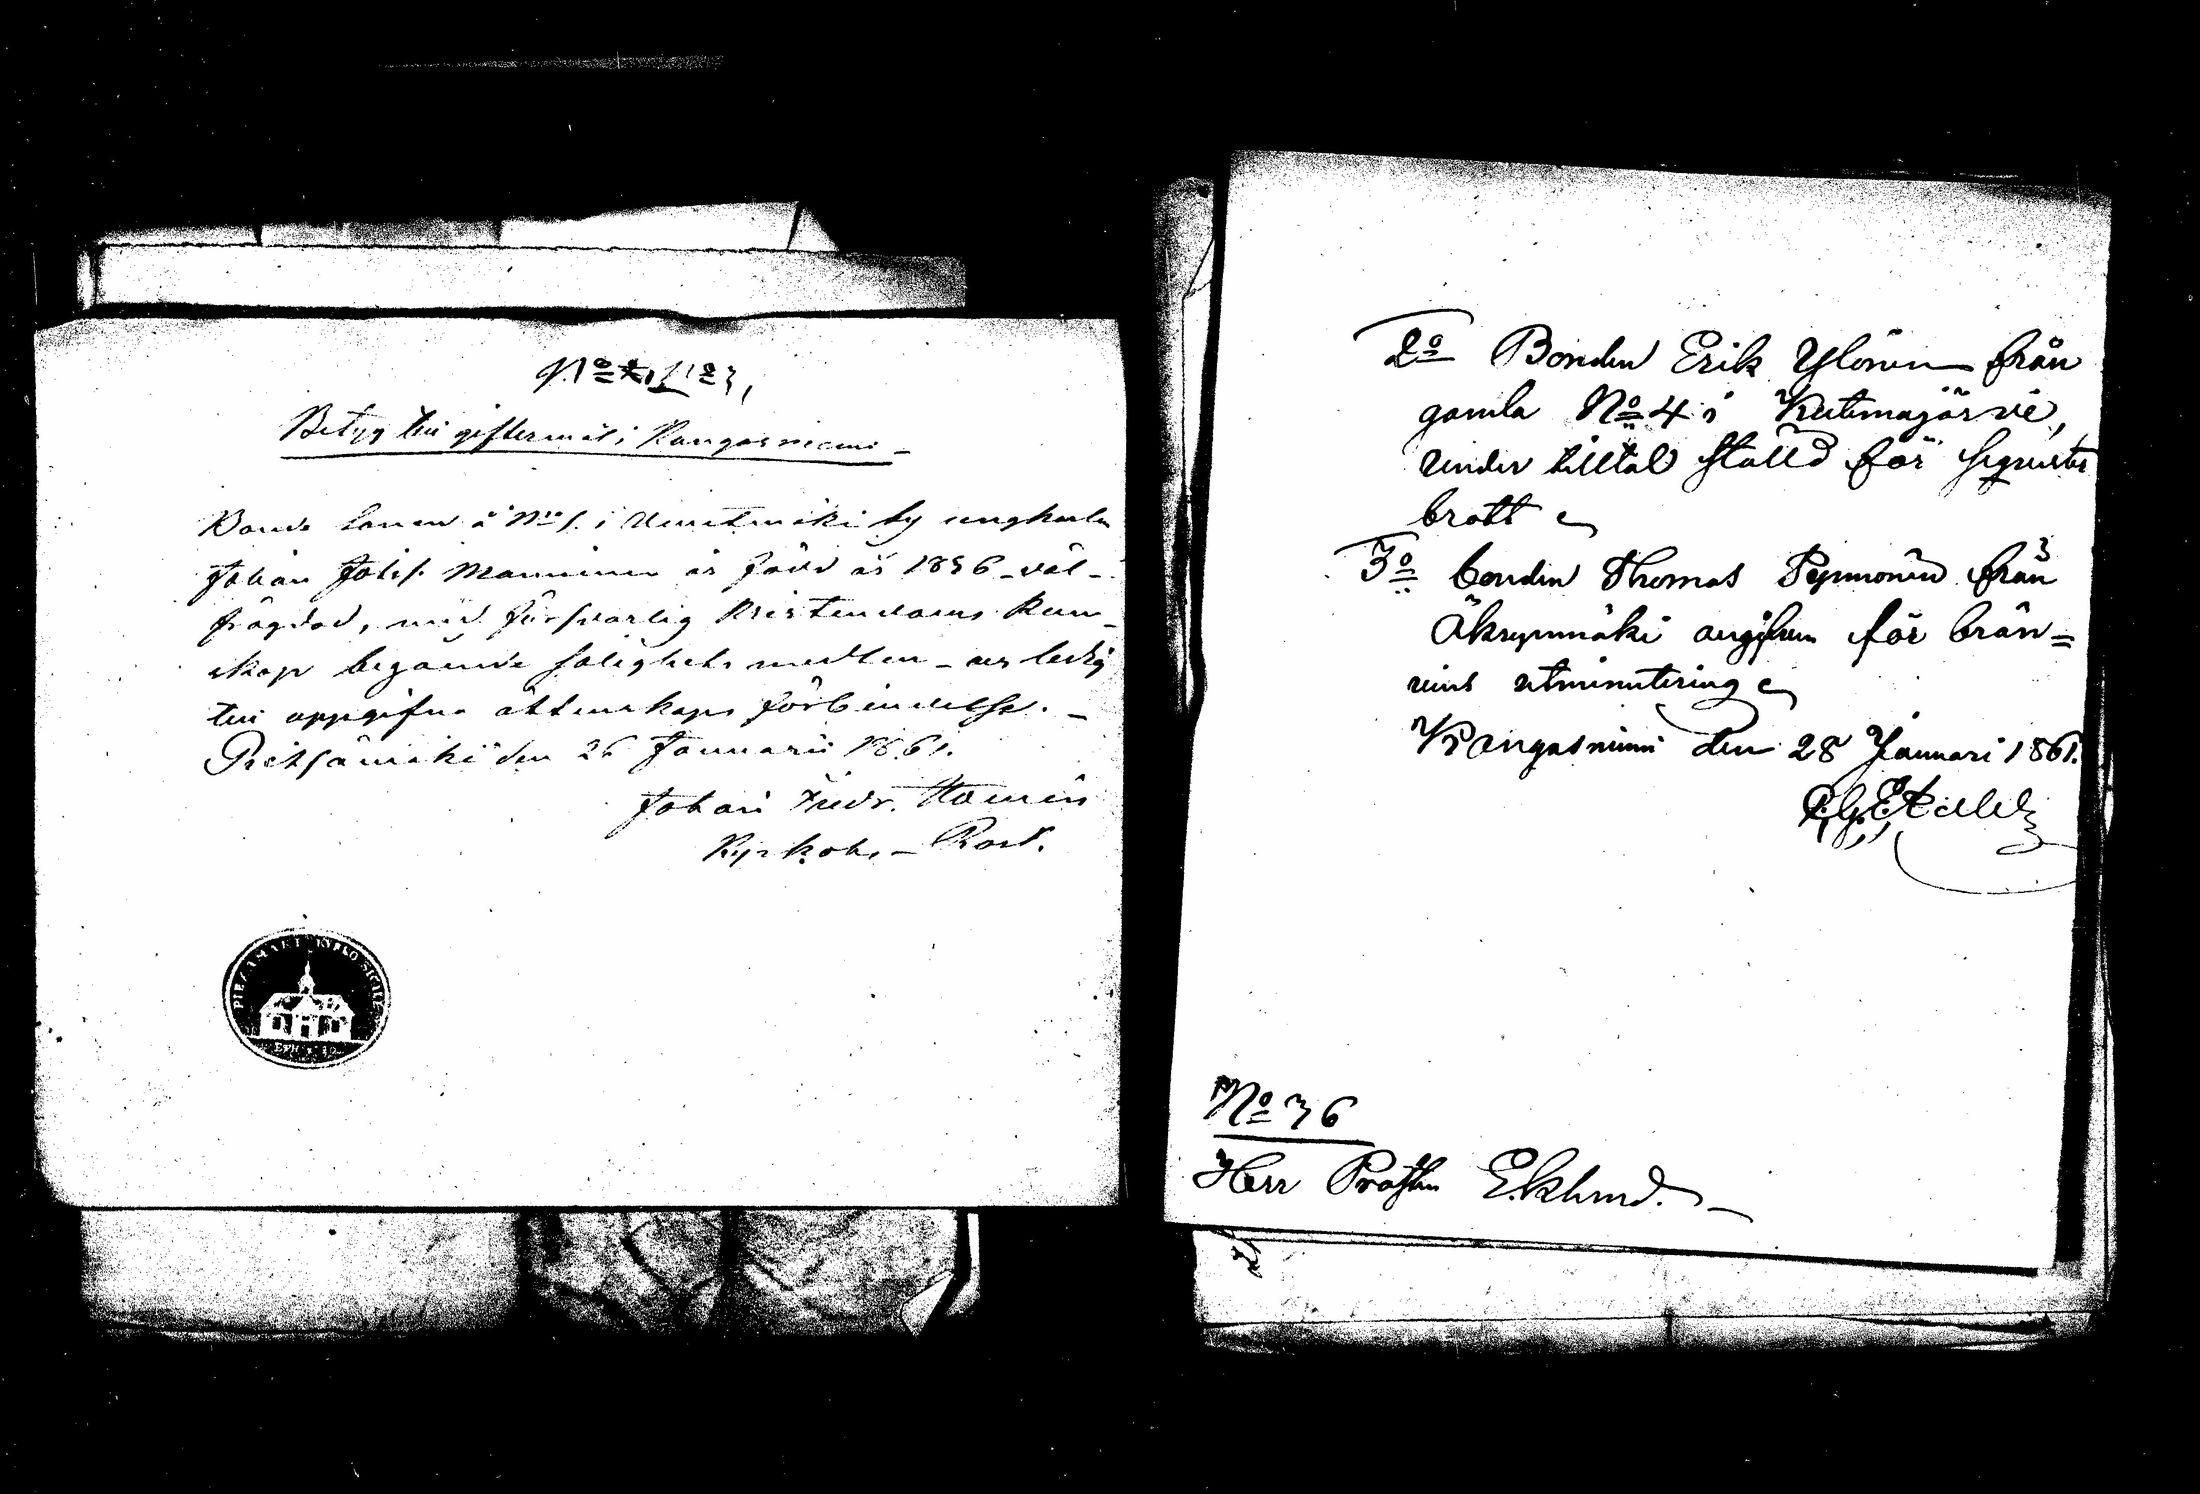 Betyg till giftermål i Kangasniemi
Bonde sonen å No 1. i by ungkarlen
Johan Johs. Manninen är född år 1836 - väl-
frägdad, med försvarlig Kristendoms kun-
skap begående salighets medlen - är ledig
till uppgifne äktenskaps förbindelse. -
Pieksämäki den 26 Januarii 1861.
Johan Fredr.
Kyrkoh. - Prost.
PIEXÄMÄKI KYRKO SIGILL
2o Bonden Erik Ylönen från
gamla No 4 i Kutemajärvi,
under tilltal ställd för
brott
3o bonden Thomas Pynnönen från
Äkrynmäki angifven för brän=
vins utminutering
Kangasniemi den 28 Januari 1861.
No 36
Herr Prosten Eklund. -